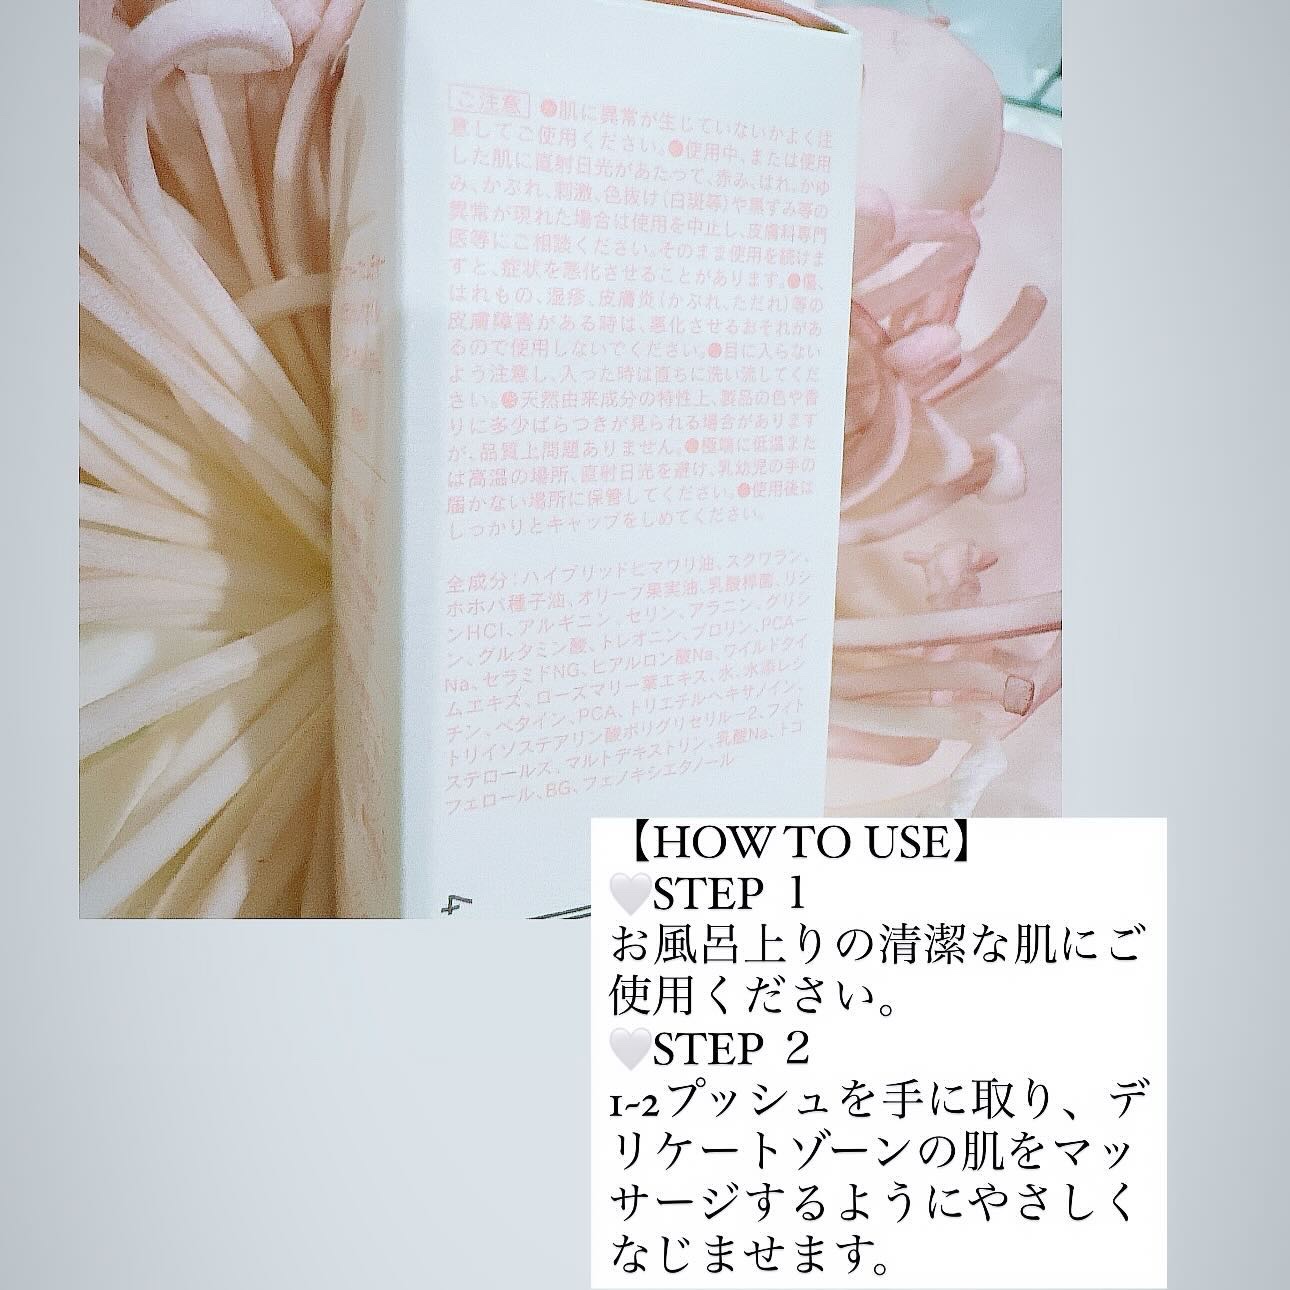 ご注意 ●肌に異常が生じていないかよく注
意してご使用ください。●使用中、または使用
した肌に直射日光があたって、赤み、はれ、かゆ
み、かぶれ、刺激、色抜け(白斑等)や黒ずみ等の
異常が現れた場合は使用を中止し、皮膚科専門
医等にご相談ください。そのまま使用を続けま
すと、症状を悪化させることがあります。●傷、
はれもの、湿疹、皮膚炎(かぶれ、ただれ)等の
皮膚障害がある時は、悪化させるおそれがあ
るので使用しないでください。●目に入らない
よう注意し、入った時は直ちに洗い流してくだ
さい。●天然由来成分の特性上、製品の色や香
りに多少ばらつきが見られる場合があります
が、品質上問題ありません。●極端に低温また
は高温の場所、直射日光を避け、乳幼児の手の
届かない場所に保管してください。●使用後は
しっかりとキャップをしめてください。
全成分:ハイブリッドヒマワリ油、スクワラン、
ホホバ種子油、オリーブ果実油、乳酸桿菌、リシ
ンHCl、アルギニン、セリン、アラニン、グリシ
ン、グルタミン酸、トレオニン、プロリン、PCA-
Na、セラミドNG、ヒアルロン酸Na、ワイルドタイ
ムエキス、ローズマリー葉エキス、水、水添レシ
チン、ベタイン、PCA、トリエチルヘキサノイン、
トリイソステアリン酸ポリグリセリル-2、フィト
ステロールズ、マルトデキストリン、乳酸Na、トコ
フェロール、BG、フェノキシエタノール
【HOW TO USE】
🤍STEP 1
お風呂上りの清潔な肌にご
使用ください。
🤍STEP 2
1~2プッシュを手に取り、デ
リケートゾーンの肌をマッ
サージするようにやさしく
なじませます。